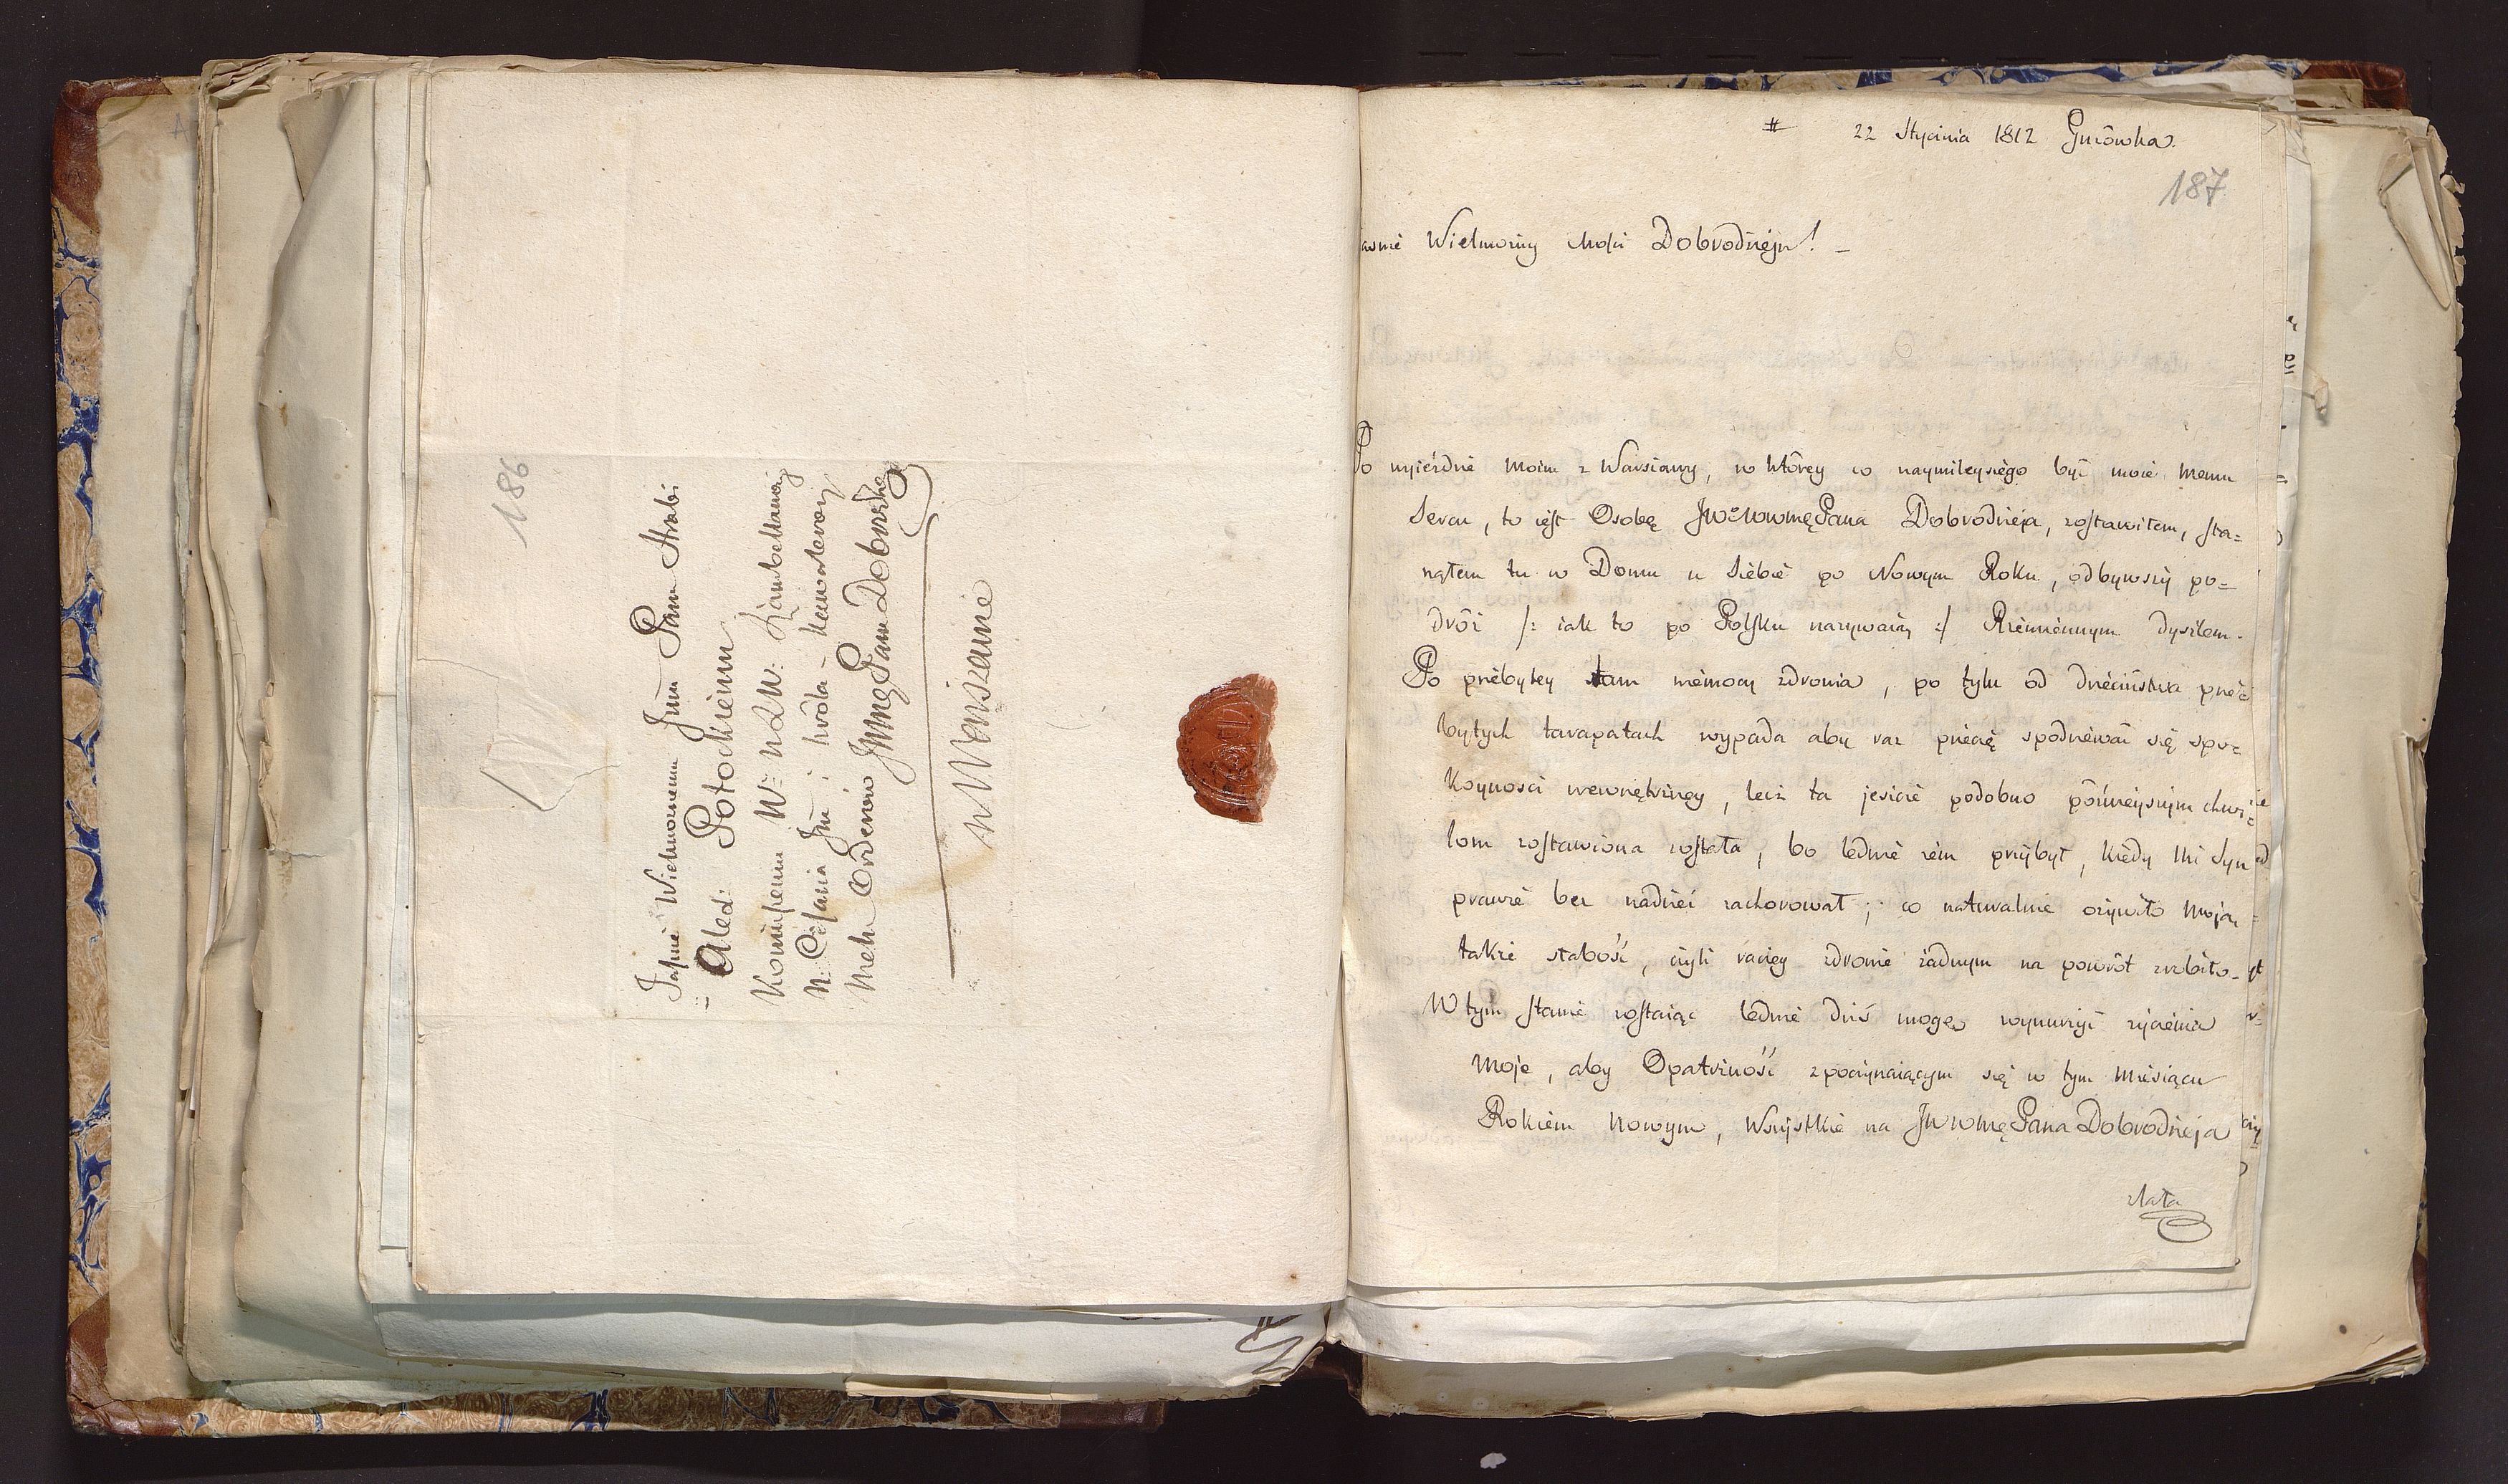 186
Jaśnie Wielmożnemu Jmu Panu Hrabi
Alex: Potockiemu
Koniuszemu W: X Lit W: Szambellanowi
N. Cesarza Jmci: Kawalerowi
Wielu Orderów JWmę Panu Dobrodz
w Warszawie
# 22 Stycznia 1812
187
Jaśnie Wielmożny Mości Dobrodzieju! –
Po wyieździe moim z Warszawy, w którey co naymileyszego być może memu
sercu, to iest Osobę JWo WWmę Pana Dobrodzieja, zostawiłem, sta=
nąłem tu w Domu u siebie po Nowym Roku, odbywszy po=
dróż /: iak to po Polsku nazywaią :/ Rzemiennym dyszlem.
Po przebytey tam niemocy zdrowia, po tylu od dzieciństwa prze=
bytych tarapatach wypada aby raz przecię spodziewać się spo=
koyności wewnętrzney, lecz ta jeszcze podobno późnieyszym chwi=
lom zostawiona została, bo ledwie żem przybył, kiedy mi Syn
prawie bez nadziei zachorował; co naturalnie ożywiło moją
także słabość, czyli raczey zdrowie żadnym na powrót zrobiło.
W tym stanie zostaiąc ledwie dziś mogę wynurzyć życzenia
moje, aby Opatrzność z poczynaiącym się w tym Miesiącu
Rokiem Nowym, Wszystkie na JWWmę Pana Dobrodzieja
zlała